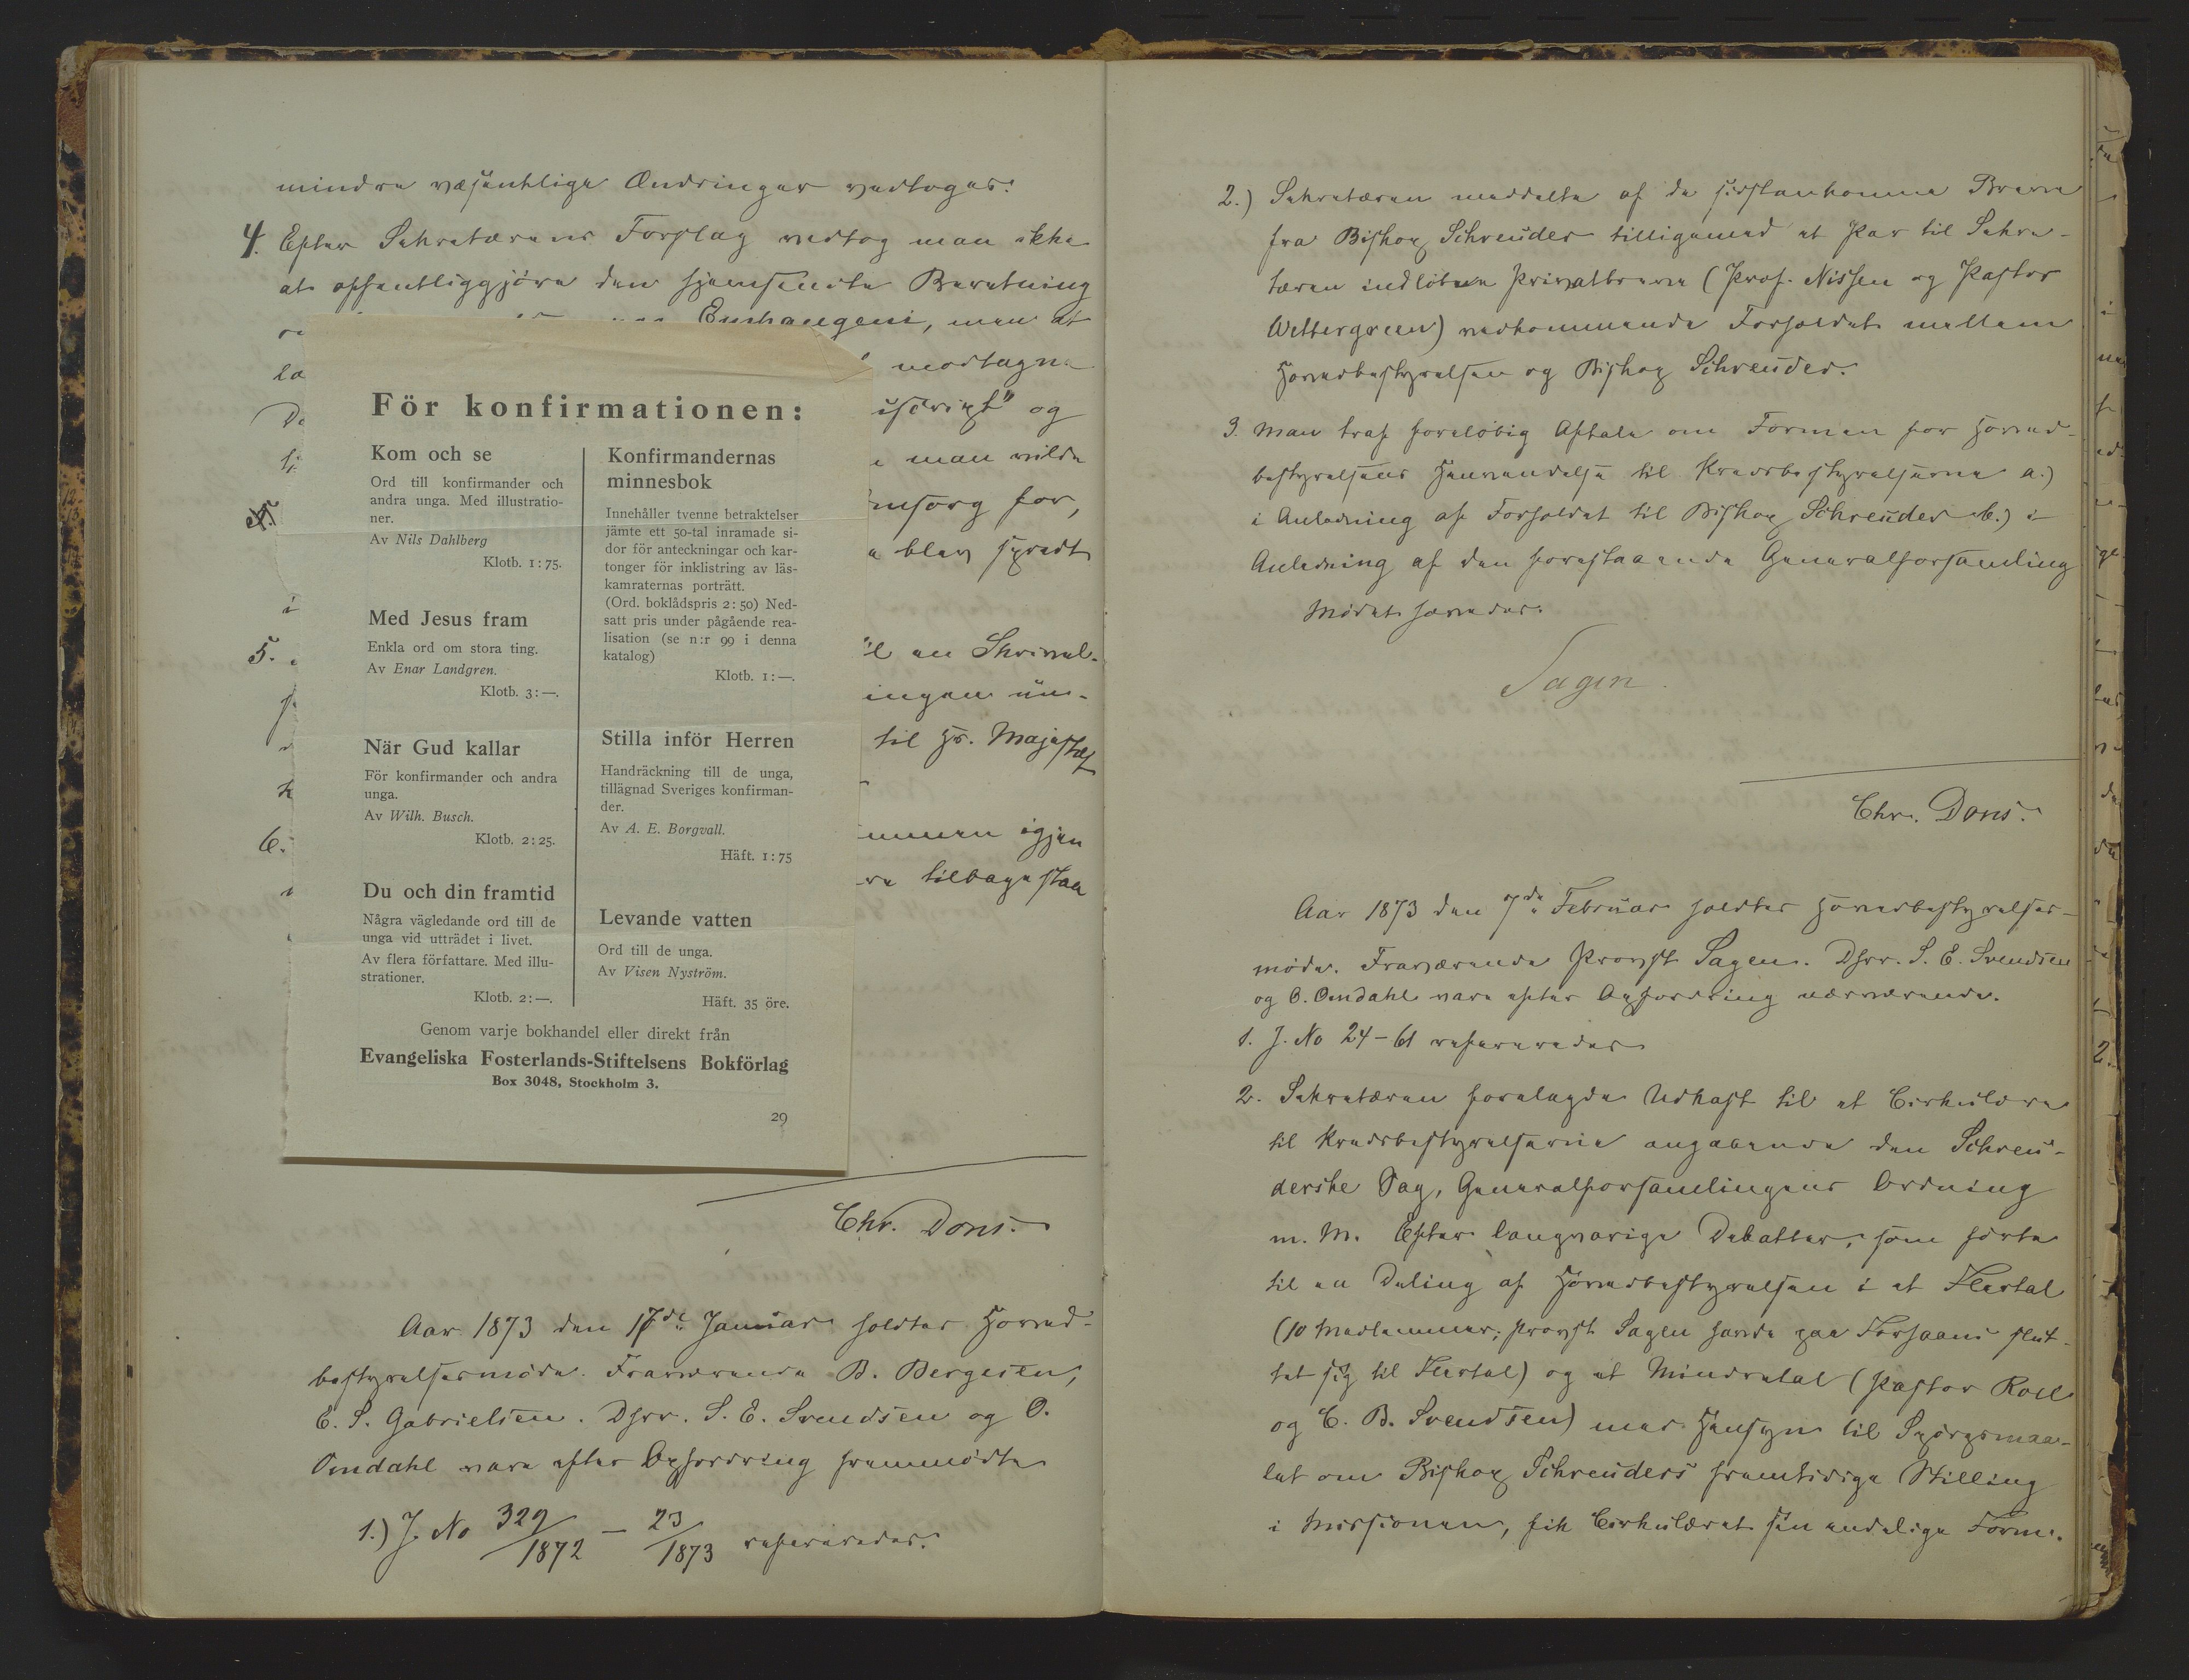 mindre væsentlige Ændringer vedtoges.
4. Efter Sekretærens Forslag vedtog man ikke
at offentliggjøre den hjemsendte Beretning
Emhangeni, men at
modtagne
og
man vilde
omsorg for,
blev spredt
i
5.
en Skrivel-
ingen
til Hs. Majestæt
6.
igjen
tilbagestaa
För konfirmationen:
Kom och se
Ord till konfirmander och
andra unga. Med illustratio-
ner.
Av Nils Dahlberg
Klotb. 1:75.
Med Jesus fram
Enkla ord om stora ting.
Av Enar Landgren.
Klotb. 3:—.
När Gud kallar
För konfirmander och andra
unga.
Av Wilh. Busch.
Klotb. 2:25.
Du och din framtid
Några vägledande ord till de
unga vid utträdet i livet.
Av flera författare. Med illu-
strationer.
Klotb. 2:—.
Konfirmandernas
minnesbok
Innehåller tvenne betraktelser
jämte ett 50-tal inramade si-
dor för anteckningar och kar-
tonger för inklistring av läs-
kamraternas porträtt.
(Ord. boklådspris 2:50) Ned-
satt pris under pågående rea-
lisation (se n:r 99 i denna
katalog)
Klotb. 1:—.
Stilla inför Herren
Handräckning till de unga,
tillägnad Sveriges konfirman-
der.
Av A. E. Borgvall.
Häft. 1:75
Levande vatten
Ord till de unga.
Av Visen Nyström.
Häft. 35 öre.
Genom varje bokhandel eller direkt från
Evangeliska Fosterlands-Stiftelsens Bokförlag
Box 3048, Stockholm 3.
29
Chr. Dons.
Aar 1873 den 17de Januar holdtes Hoved-
bestyrelsesmøde. Fraværende B. Bergesen,
E. S. Gabrielsen. Dhrr. S. E. Svendsen og O.
Omdahl vare efter Opfordring fremmødte
1.) J. No 329/1872 – 23/1873 refereredes.
2.) Sekretæren meddelte af de sidstankomne Breve
fra Biskop Schreuder tilligemed et Par til Sekre-
tæren indløbne Privatbreve (Prof. Nissen og Pastor
Wettergreen) vedkommende Forholdet mellem
Hovedbestyrelsen og Biskop Schreuder.
3. Man traf foreløbig Aftale om Formen for Hoved-
bestyrelsens Henvendelse til Kredsbestyrelserne a.)
i Anledning af Forholdet til Biskop Schreuder b.) i
Anledning af den forestaaende Generalforsamling
Mødet hævedes.
Sagen
Chr. Dons.
Aar 1873 den 7de Februar holdtes Hovedbestyrelses-
møde. Fraværende Provst Sagen. Dhrr. S. E. Svendsen
og O. Omdahl vare efter Opfordring nærværende.
1. J. No 24–61 refereredes
2. Sekretæren forelagde Udkast til et Cirkulære
til Kredsbestyrelserne angaaende den Schreu-
derske Sag, Generalforsamlingens Ordning
m. M. Efter langvarige Debatter, som førte
til en Deling af Hovedbestyrelsen i et Flertal
(10 Medlemmer; Provst Sagen havde paa Forhaand slut-
tet sig til Flertal) og et Mindretal (Pastor Roll
og C. B. Svendsen) med Hensyn til Spørgsmaa-
let om Biskop Schreuders fremtidige Stilling
i Missionen, fik Cirkulæret sin endelige Form.